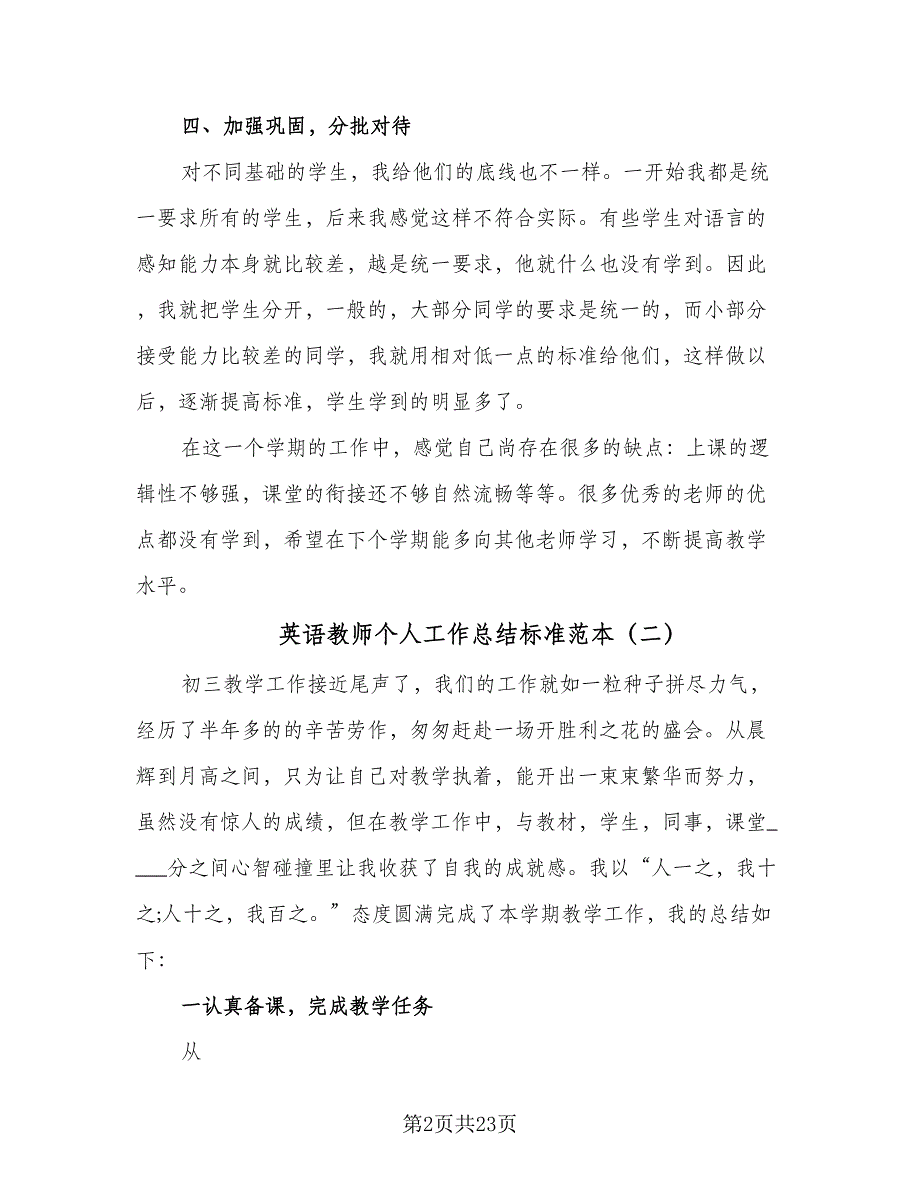 四、加强巩固，分批对待
对不同基础的学生，我给他们的底线也不一样。一开始我都是统
一要求所有的学生，后来我感觉这样不符合实际。有些学生对语言的
感知能力本身就比较差，越是统一要求，他就什么也没有学到。因此
，我就把学生分开，一般的，大部分同学的要求是统一的，而小部分
接受能力比较差的同学，我就用相对低一点的标准给他们，这样做以
后，逐渐提高标准，学生学到的明显多了。
在这一个学期的工作中，感觉自己尚存在很多的缺点：上课的逻
辑性不够强，课堂的衔接还不够自然流畅等等。很多优秀的老师的优
点都没有学到，希望在下个学期能多向其他老师学习，不断提高教学
水平。
英语教师个人工作总结标准范本（二）
初三教学工作接近尾声了，我们的工作就如一粒种子拼尽力气，
经历了半年多的的辛苦劳作，匆匆赶赴一场开胜利之花的盛会。从晨
辉到月高之间，只为让自己对教学执着，能开出一束束繁华而努力，
虽然没有惊人的成绩，但在教学工作中，与教材，学生，同事，课堂_
___分之间心智碰撞里让我收获了自我的成就感。我以“人一之，我十
之;人十之，我百之。”态度圆满完成了本学期教学工作，我的总结如
下：
一认真备课，完成教学任务
从
第2页共23页